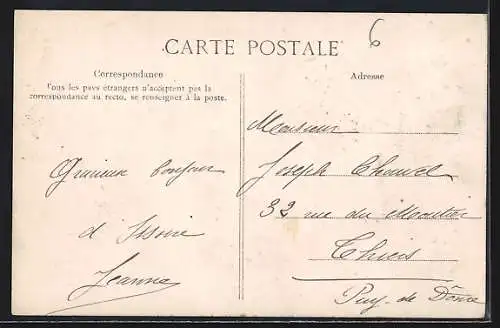 6
CARTE POSTALE
Correspondance
Tous les pays étrangers n'acceptent pas la
correspondance au recto, se renseigner à la poste.
Adresse
bonjour
d'Issoire
Jeanne
Monsieur
Joseph Chauvet
32 rue du Moutier
Thiers
Puy-de Dôme